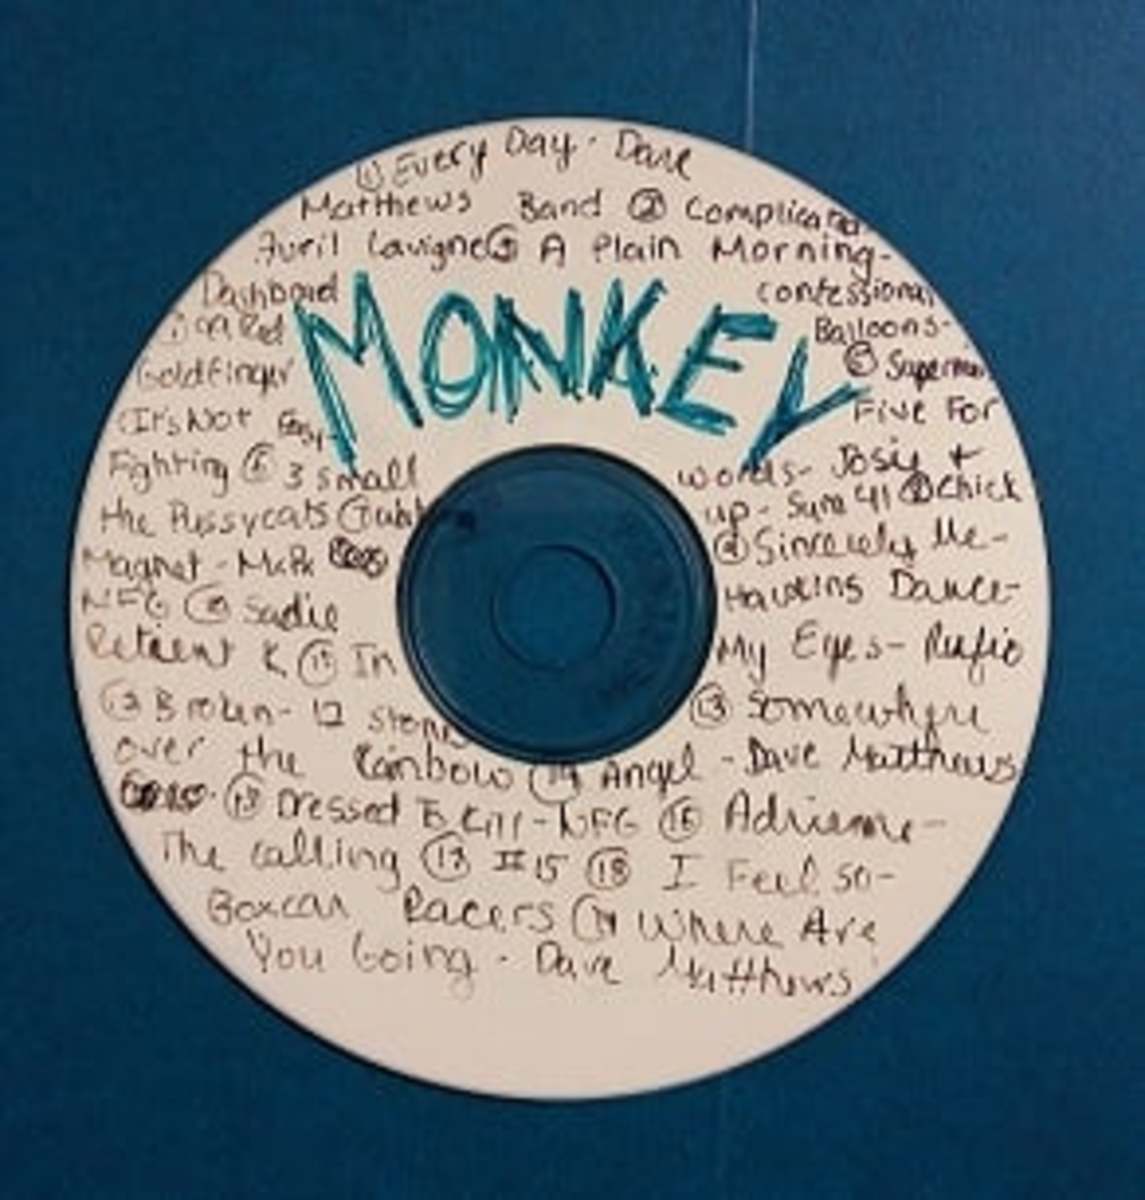 ① Every Day - Dave
Matthews Band ② Complicated
Avril Lavigne ③ A Plain Morning-
Dashboard Confessional
Red Balloons-
Goldfinger ⑤ Superman
(It's Not Easy- Five For
Fighting ⑥ 3 small words- Josie +
the Pussycats ⑦ up - Sum 41 ⑧ Chick
Magnet - MxPx ⑨ Sincerely Me-
NFG ⑩ Sadie Hawkins Dance-
Relient K ⑪ In My Eyes- Rufio
Broken- 12 Stones ⑬ Somewhere
over the Rainbow ⑭ Angel - Dave Matthews
⑮ Dressed To Kill - NFG ⑯ Adrienne-
The Calling ⑰ #15 ⑱ I Feel so-
Boxcar Racers ⑲ Where Are
You Going - Dave Matthews
MONKEY